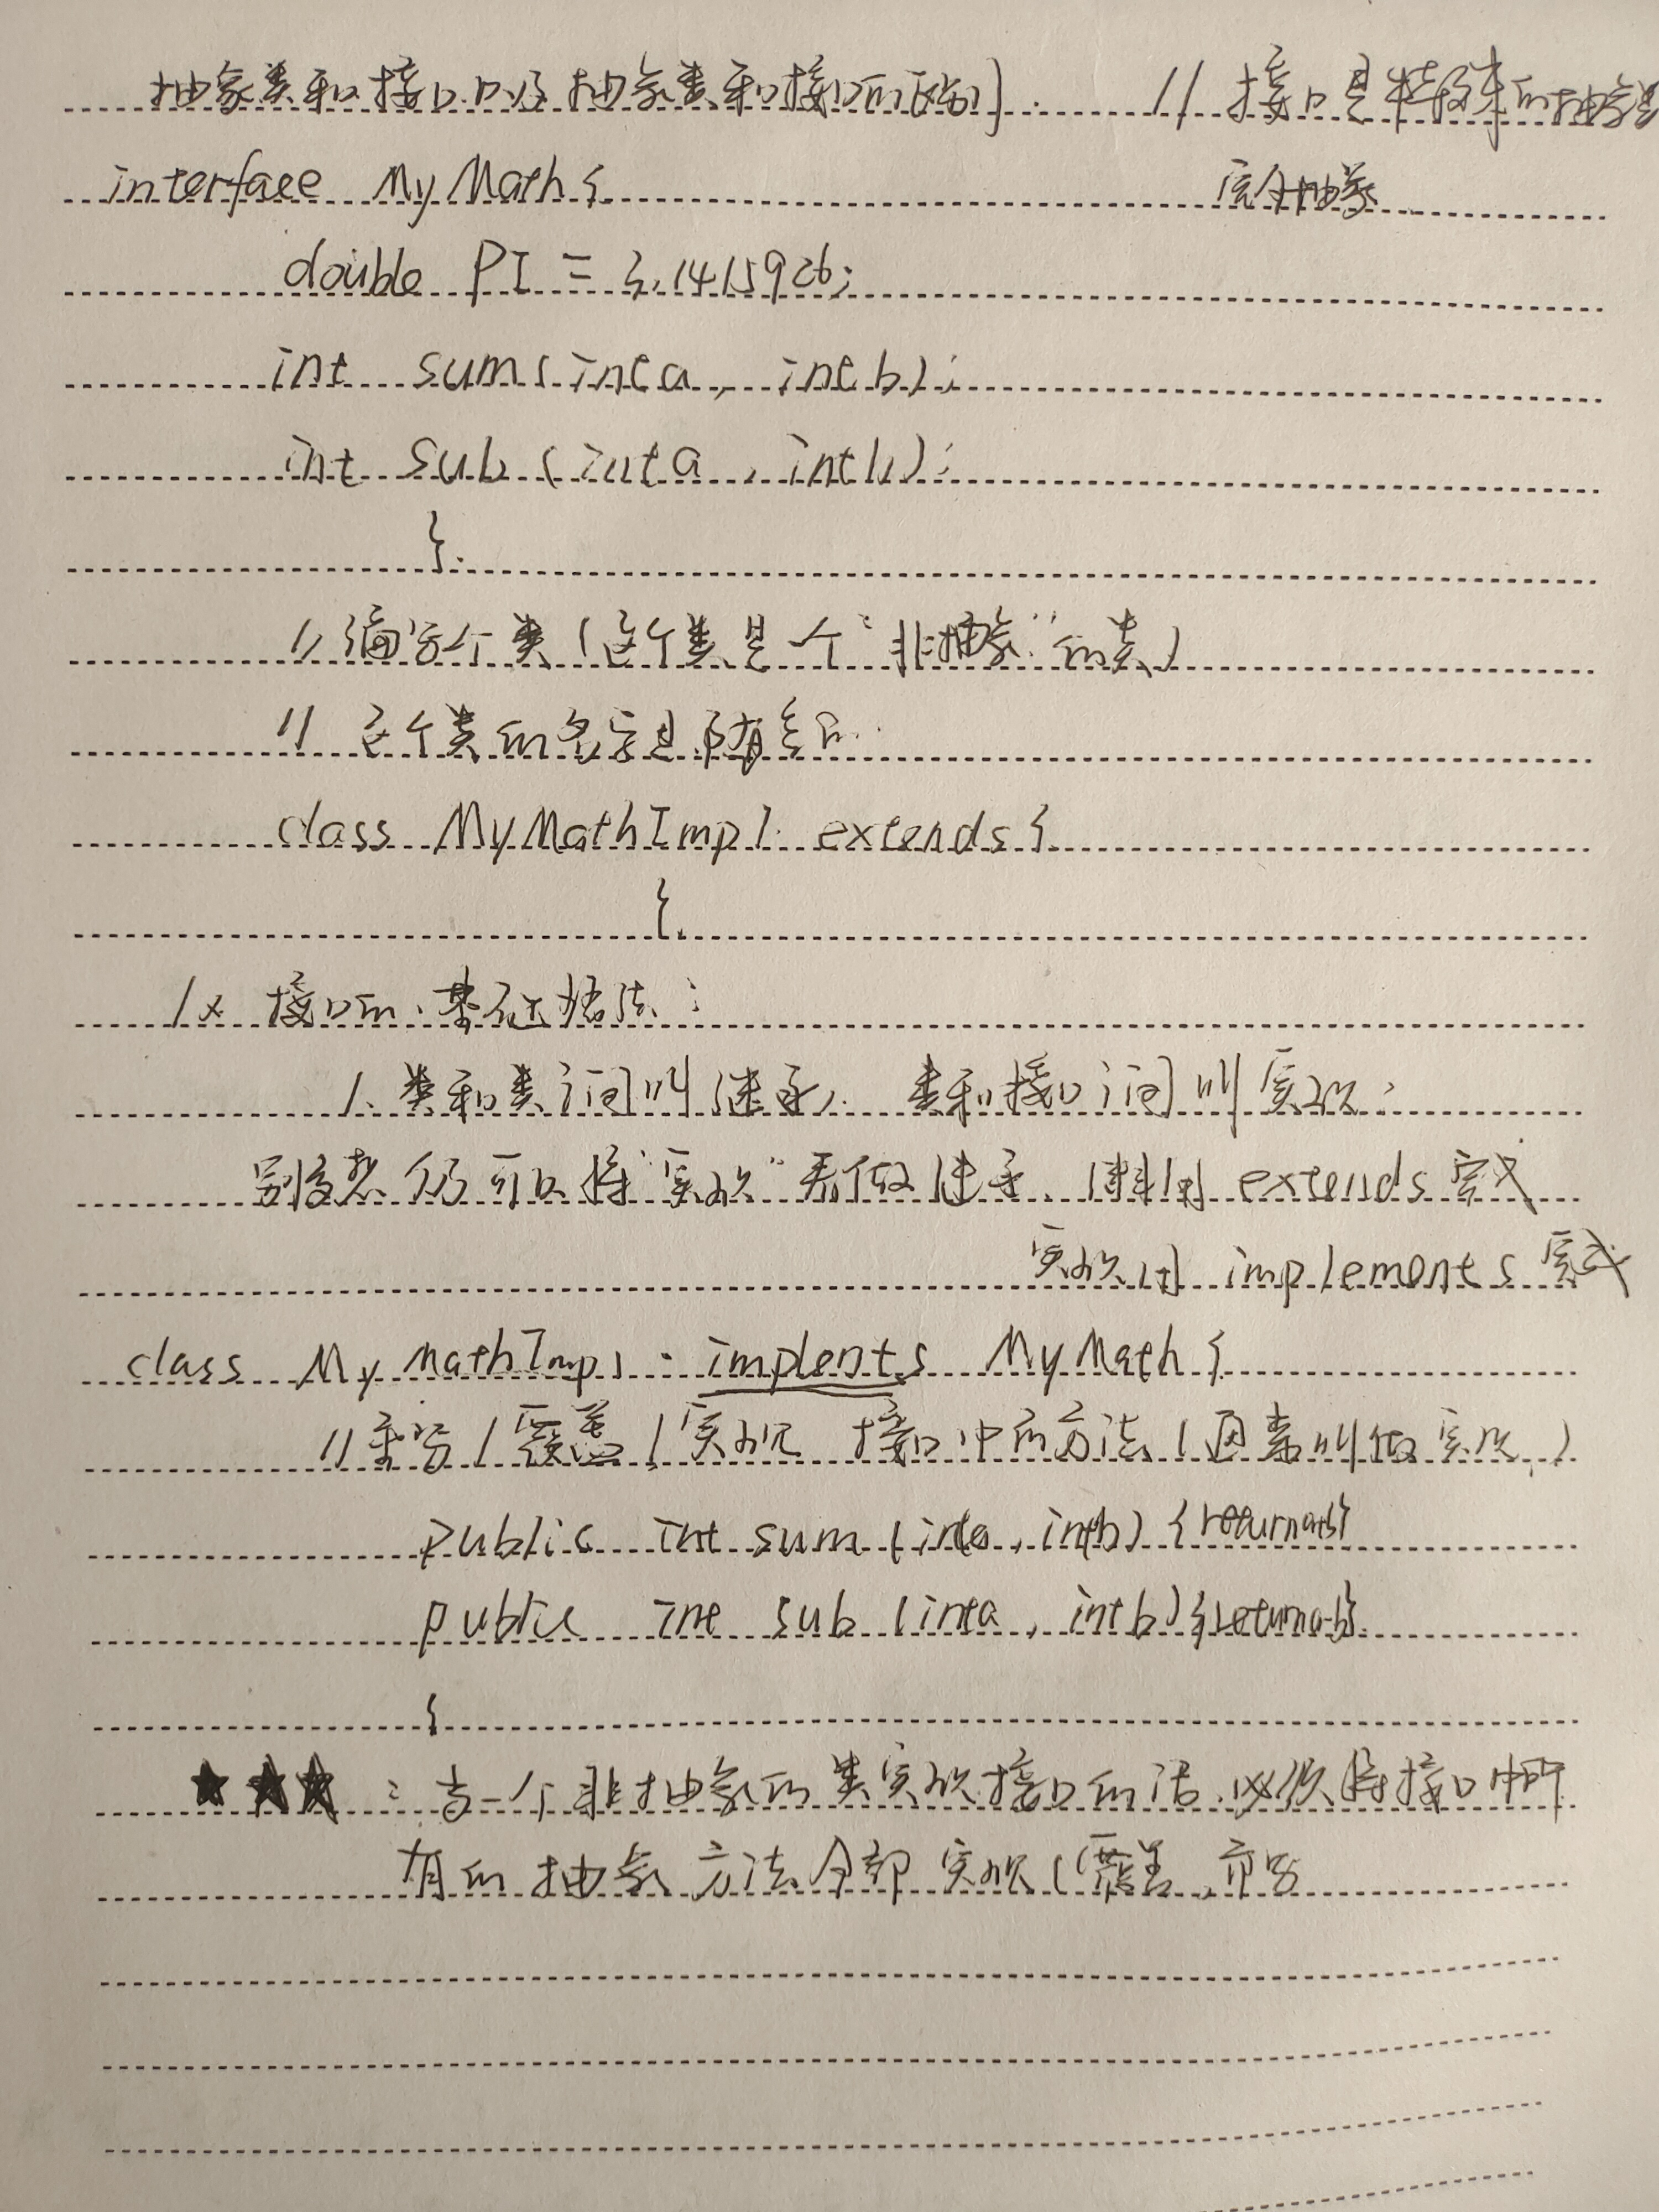 抽象类和接口以及抽象类和接口的区别. // 接口是特殊的抽象类
interface MyMath{ 完全抽象
double PI = 3.1415926;
int sum(int a, int b);
int sub(int a, int b);
}
//编写个类(这个类是一个"非抽象"的类)
// 这个类的名字是随意的.
class MyMathImpl extends{
}
/* 接口的、基础语法:
1、类和类之间叫继承, 类和接口之间叫实现:
别多想 仍可以将"实现"看做继承、继承用extends完成
实现用 implements 完成
class MyMathImpl implents MyMath{
//重写/覆盖/实现 接口中的方法(通常叫做实现.)
public int sum(int a, int b) {return a+b}
public int sub(int a, int b){return a-b}
}
★★★ : 当一个非抽象的类实现接口的话.必须将接口中所
有的抽象方法全部实现(覆盖、重写